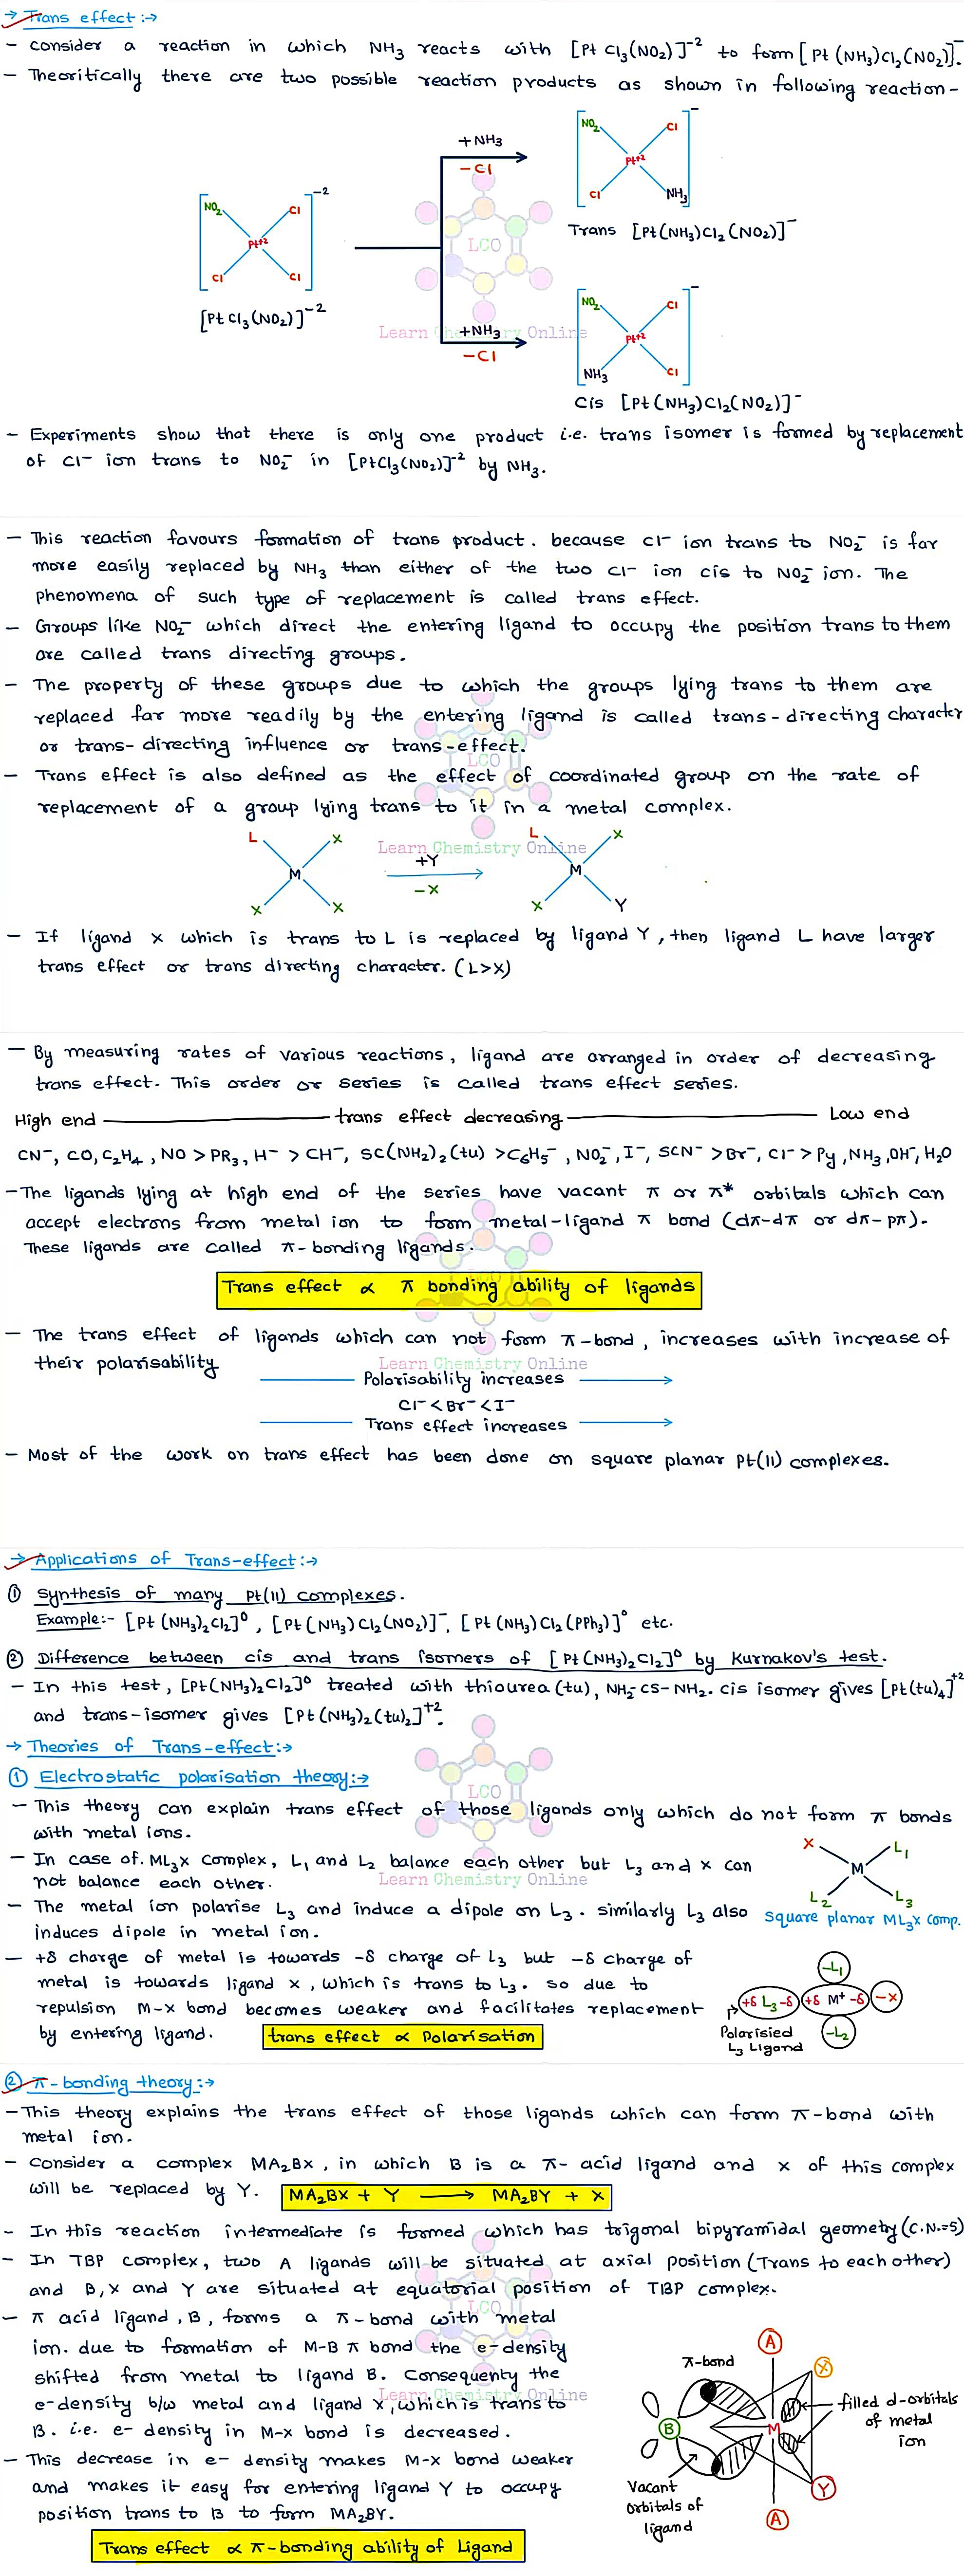 → Trans effect :→
- Consider a reaction in which NH3 reacts with [Pt Cl3(NO2)]-2 to form [Pt (NH3)Cl2(NO2)]-.
- Theoritically there are two possible reaction products as shown in following reaction-
+NH3
-Cl
NO2 Cl
Pt+2
Cl NH3
-
Trans [Pt(NH3)Cl2(NO2)]-
NO2 Cl
Pt+2
Cl Cl
-2
[Pt Cl3(NO2)]-2
LCO
Learn Chemistry Online
+NH3
-Cl
NO2 Cl
Pt+2
NH3 Cl
-
Cis [Pt(NH3)Cl2(NO2)]-
- Experiments show that there is only one product i.e. trans isomer is formed by replacement
of Cl- ion trans to NO2- in [PtCl3(NO2)]-2 by NH3.
- This reaction favours formation of trans product. because Cl- ion trans to NO2- is far
more easily replaced by NH3 than either of the two Cl- ion cis to NO2- ion. The
phenomena of such type of replacement is called trans effect.
- Groups like NO2- which direct the entering ligand to occupy the position trans to them
are called trans directing groups.
- The property of these groups due to which the groups lying trans to them are
replaced far more readily by the entering ligand is called trans-directing character
or trans-directing influence or trans-effect.
LCO
- Trans effect is also defined as the effect of coordinated group on the rate of
replacement of a group lying trans to it in a metal complex.
Learn Chemistry Online
L X
M
X X
+Y
-X
L X
M
X Y
- If ligand X which is trans to L is replaced by ligand Y, then ligand L have larger
trans effect or trans directing character. (L>X)
- By measuring rates of various reactions, ligand are arranged in order of decreasing
trans effect. This order or series is called trans effect series.
High end trans effect decreasing Low end
CN-, CO, C2H4, NO > PR3, H- > CH-, SC(NH2)2(tu) > C6H5-, NO2-, I-, SCN- > Br-, Cl- > Py, NH3, OH-, H2O
- The ligands lying at high end of the series have vacant π or π* orbitals which can
accept electrons from metal ion to form metal-ligand π bond (dπ-dπ or dπ-pπ).
These ligands are called π-bonding ligands.
Trans effect ∝ π bonding ability of ligands
LCO
- The trans effect of ligands which can not form π-bond, increases with increase of
their polarisability
Learn Chemistry Online
Polarisability increases
Cl- < Br- < I-
Trans effect increases
- Most of the work on trans effect has been done on square planar Pt(II) complexes.
→ Applications of Trans-effect:→
① Synthesis of many Pt(II) complexes.
Example:- [Pt (NH3)2Cl2]0, [Pt(NH3)Cl2(NO2)]-, [Pt (NH3)Cl2(PPh3)]0 etc.
② Difference between cis and trans isomers of [Pt(NH3)2Cl2]0 by Kurnakov's test.
- In this test, [Pt(NH3)2Cl2]0 treated with thiourea(tu), NH2-CS-NH2. cis isomer gives [Pt(tu)4]+2
and trans-isomer gives [Pt(NH3)2(tu)2]+2.
→ Theories of Trans-effect:→
① Electrostatic polarisation theory:→
LCO
- This theory can explain trans effect of those ligands only which do not form π bonds
with metal ions.
- In case of ML3X Complex, L1 and L2 balance each other but L3 and X can
not balance each other.
Learn Chemistry Online
- The metal ion polarise L3 and induce a dipole on L3. similarly L3 also
induces dipole in metal ion.
X L1
M
L2 L3
Square planar ML3X Comp.
- +δ charge of metal is towards -δ charge of L3 but -δ charge of
metal is towards ligand X, which is trans to L3. so due to
repulsion M-X bond becomes weaker and facilitates replacement
by entering ligand.
trans effect ∝ Polarisation
-L1
+δ L3 -δ +δ M+ -δ -X
-L2
Polarisied
L3 Ligand
② π-bonding theory:→
- This theory explains the trans effect of those ligands which can form π-bond with
metal ion.
- Consider a complex MA2BX, in which B is a π-acid ligand and X of this complex
will be replaced by Y.
MA2BX + Y → MA2BY + X
- In this reaction intermediate is formed which has trigonal bipyramidal geometry(C.N.=5)
- In TBP complex, two A ligands will be situated at axial position (Trans to each other)
and B, X and Y are situated at equatorial position of TBP complex.
LCO
- π acid ligand, B, forms a π-bond with metal
ion. due to formation of M-B π bond the e-density
shifted from metal to ligand B. Consequenty the
e-density b/w metal and ligand X, which is trans to
Learn Chemistry Online
B. i.e. e- density in M-X bond is decreased.
- This decrease in e- density makes M-X bond weaker
and makes it easy for entering ligand Y to occupy
position trans to B to form MA2BY.
Trans effect ∝ π-bonding ability of Ligand
A
π-bond
X
filled d-orbitals
of metal
ion
B
M
Vacant
orbitals of
ligand
Y
A